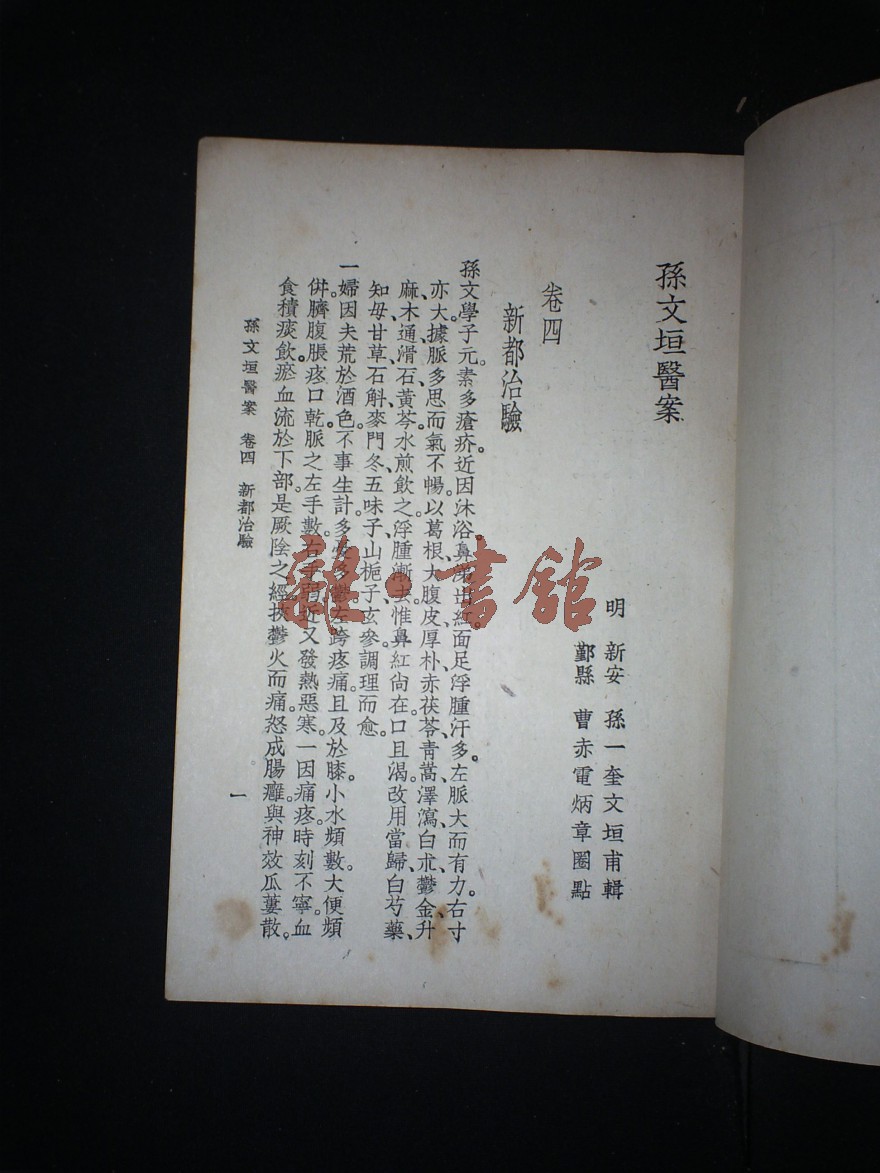 孫文垣醫案
明 新安 孫一奎文垣甫輯
鄞縣 曹赤電炳章圈點
卷四
新都治驗
孫文學子元素多瘡疥。近因沐浴。鼻出紅。面足浮腫。汗多。左脈大而有力。右寸
亦大。據脈多思而氣不暢。以葛根、大腹皮、厚朴、赤茯苓、青蒿、澤瀉、白朮、鬱金、升
麻、木通、滑石、黃芩、水煎飲之。浮腫漸去。惟鼻紅尙在。口且渴。改用當歸、白芍藥、
知毋、甘草、石斛、麥門冬、五味子、山梔子、玄參調理而愈。
一婦因夫荒於酒色。不事生計。多鬱。左跨疼痛。且及於膝。小水頻數。大便頻
倂。臍腹脹疼。口乾。脈之左手數。右手弱。近又發熱惡寒。一因痛疼。時刻不寧。血
食積痰飲。瘀血流於下部。是厥陰之經。挾鬱火而痛。恐成腸癰。與神效瓜蔞散。
孫文垣醫案 卷四 新都治驗
一
雜·書館